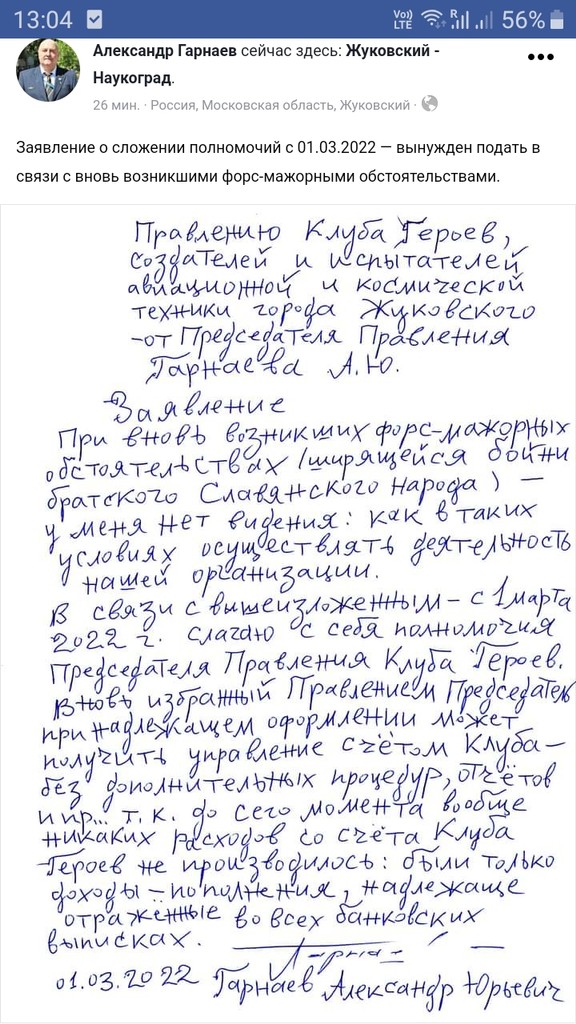 13:04 Vo) LTE R 56%
Александр Гарнаев сейчас здесь: Жуковский -
Наукоград.
26 мин. · Россия, Московская область, Жуковский ·
Заявление о сложении полномочий с 01.03.2022 — вынужден подать в
связи с вновь возникшими форс-мажорными обстоятельствами.
Правлению Клуба Героев,
создателей и испытателей
авиационной и космической
техники города Жуковского
-от Председателя Правления
Гарнаева А.Ю.
Заявление
При вновь возникших форс-мажорных
обстоятельствах (ширящейся бойни
братского Славянского народа) —
у меня нет видения: как в таких
условиях осуществлять деятельность
нашей организации.
В связи с вышеизложенным – с 1 марта
2022 г. слагаю с себя полномочия
Председателя Правления Клуба Героев.
Вновь избранный Правлением Председатель
при надлежащем оформлении может
получить управление счётом Клуба –
без дополнительных процедур, отчётов
и пр... т.к. до сего момента вообще
никаких расходов со счёта Клуба
Героев не производилось: были только
доходы – пополнения, надлежаще
отражённые во всех банковских
выписках.
01.03.2022 Гарнаев Александр Юрьевич